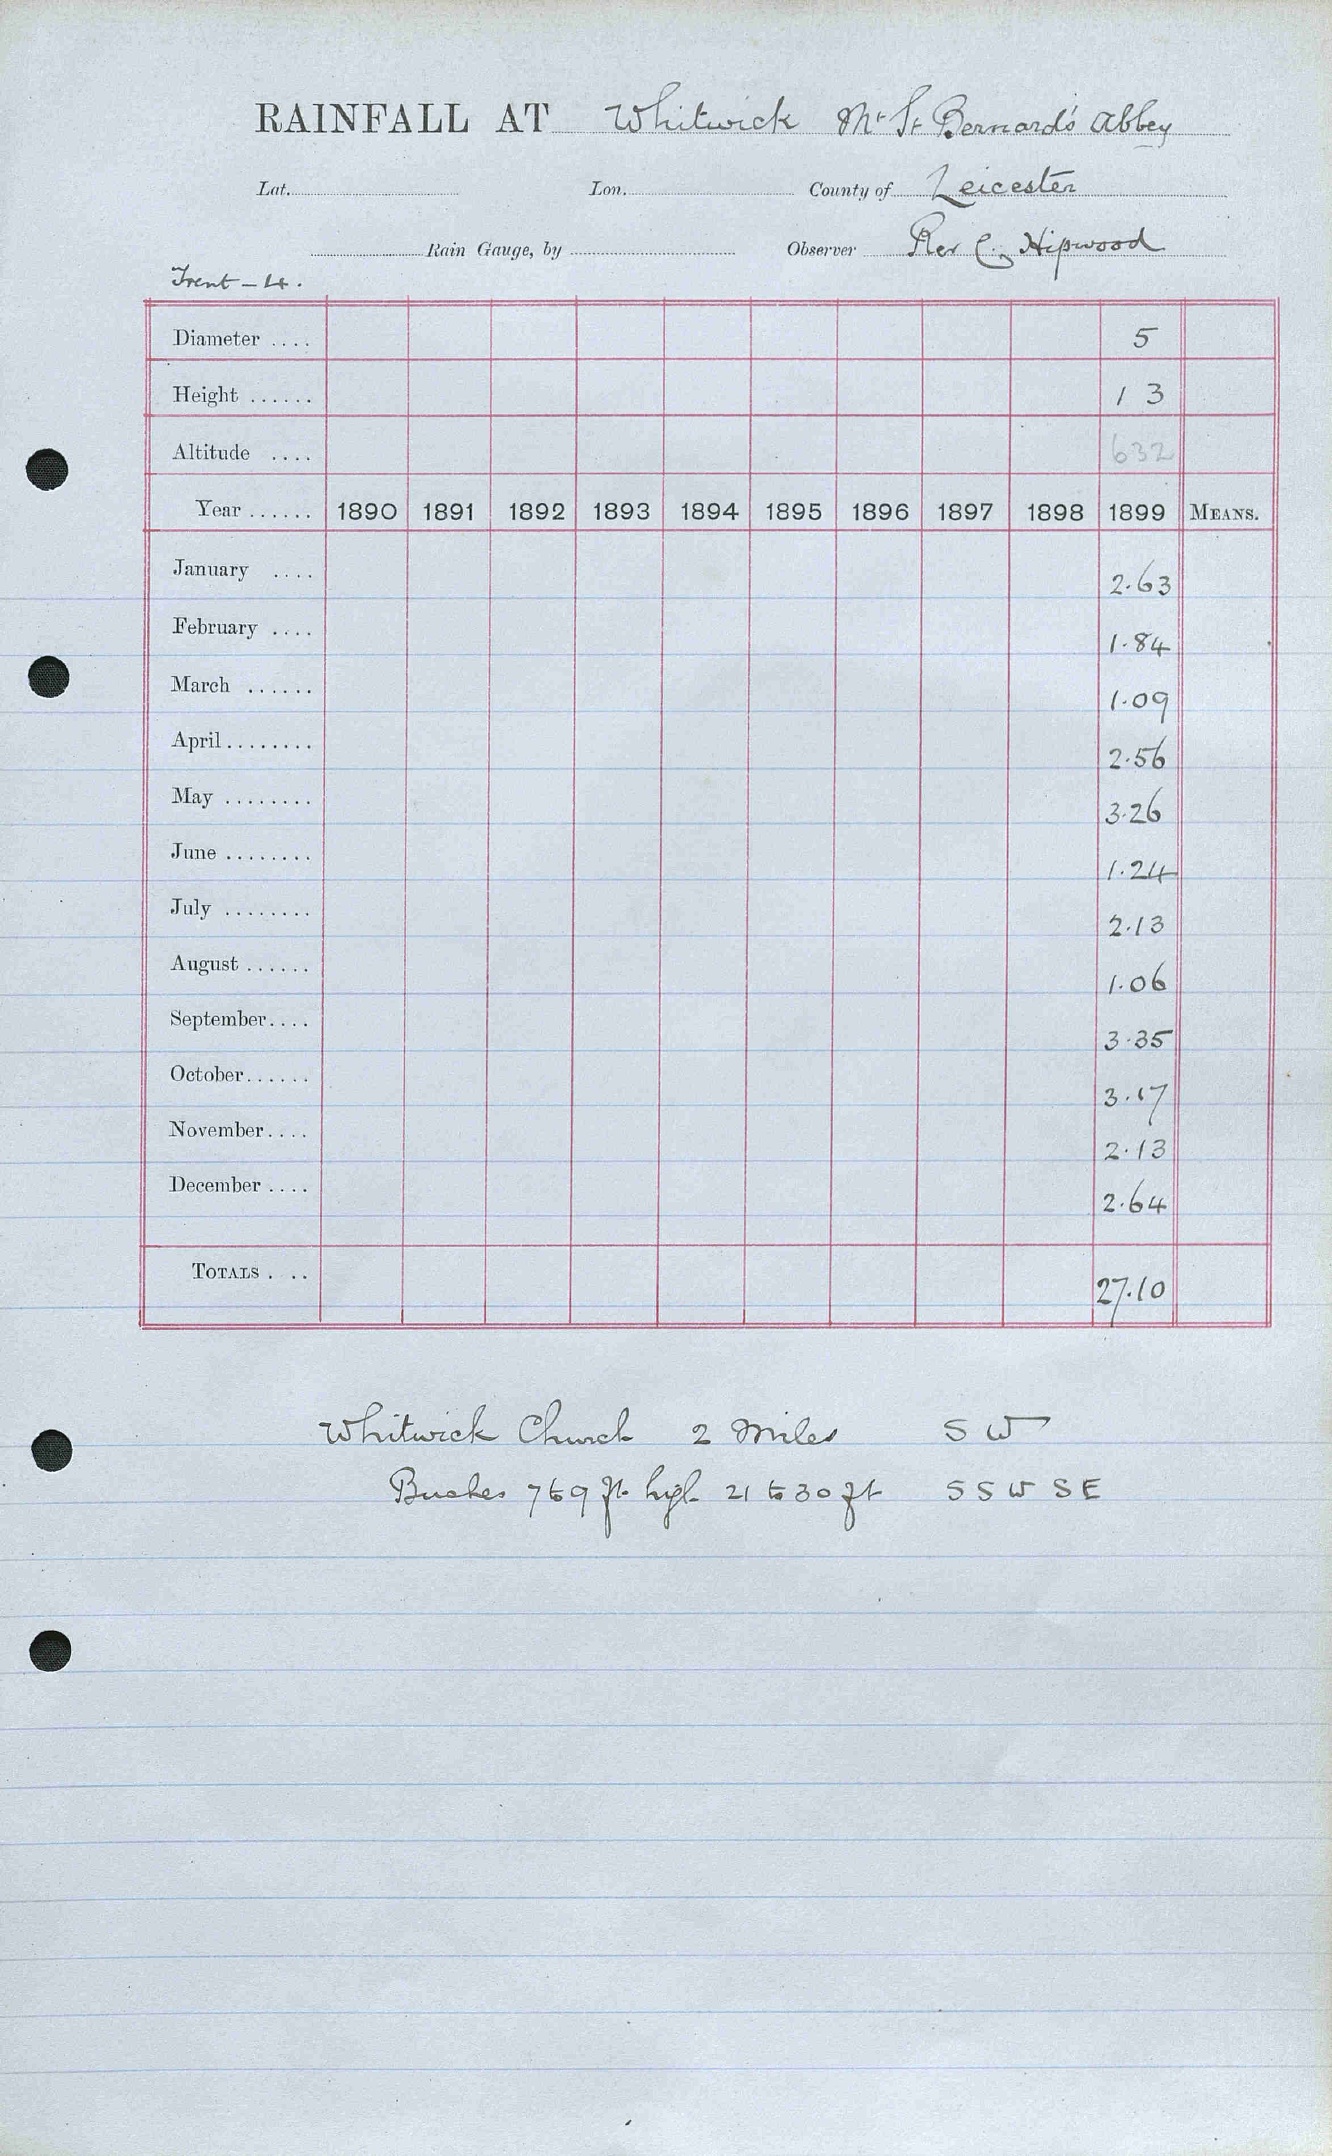 RAINFALL AT Whitwick Mt St Bernard's Abbey
Lat. Lon. County of Leicester
Rain Gauge, by Observer Rev C. Hipwood
Trent - 4.
Diameter .... 5
Height ...... 1 3
Altitude .... 632
Year ...... 1890 1891 1892 1893 1894 1895 1896 1897 1898 1899 MEANS.
January .... 2.63
February .... 1.84
March ...... 1.09
April ........ 2.56
May ........ 3.26
June ........ 1.24
July ........ 2.13
August ...... 1.06
September.... 3.35
October...... 3.17
November.... 2.13
December .... 2.64
TOTALS . .. 27.10
Whitwick Church 2 Miles S W
Bushes 7 to 9 ft. high 21 to 30 ft S S W S E